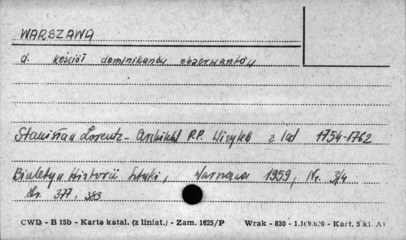 WARSZAWA
d. kościół dominikanów obserwantów
Stanisław Lorentz - Architekt P.P. Wizytek z lat 1754-1762
Biuletyn Historii Sztuki, Warszawa 1959, Nr. 3/4
str. 377, 383
CWD - B 15b - Karta katal. (z liniat.) - Zam. 1625/P Wrak - 830 - Kart. 5 kl. A1